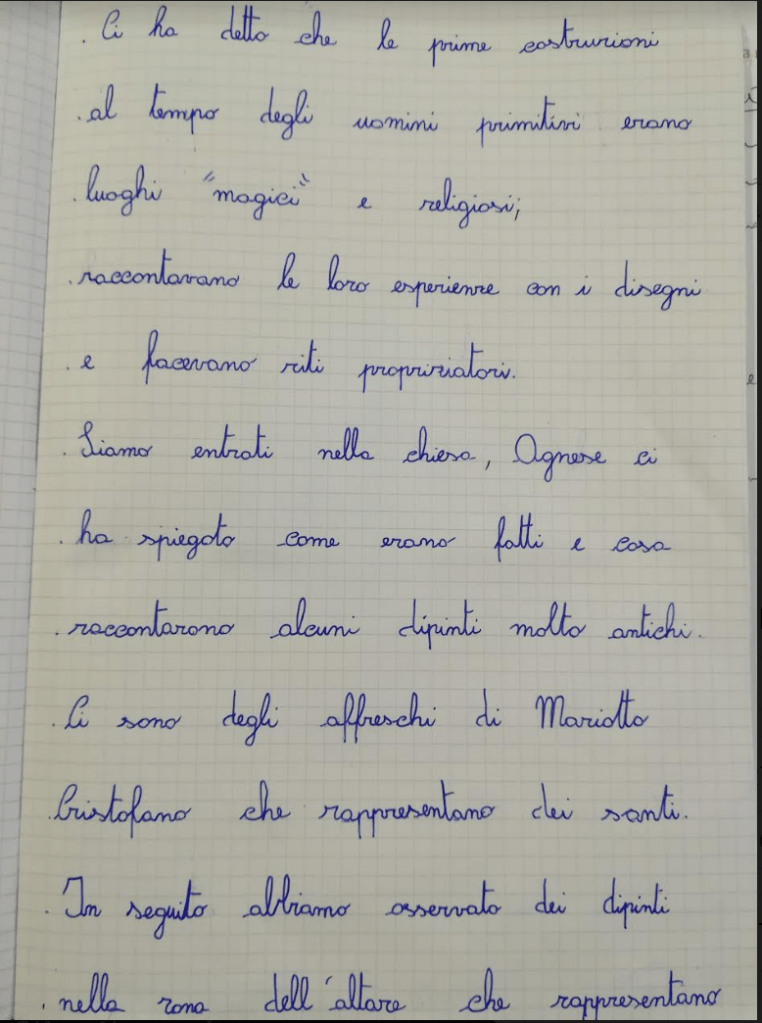 . Ci ha detto che le prime costruzioni
. al tempo degli uomini primitivi erano
. luoghi "magici" e religiosi;
. raccontavano le loro esperienze con i disegni
. e facevano riti propriziatori.
. Siamo entrati nella chiesa, Agnese ci
. ha spiegato come erano fatti e cosa
. raccontarono alcuni dipinti molto antichi.
. Ci sono degli affreschi di Mariotto
. Cristofano che rappresentano dei santi.
. In seguito abbiamo osservato dei dipinti
. nella zona dell'altare che rappresentano